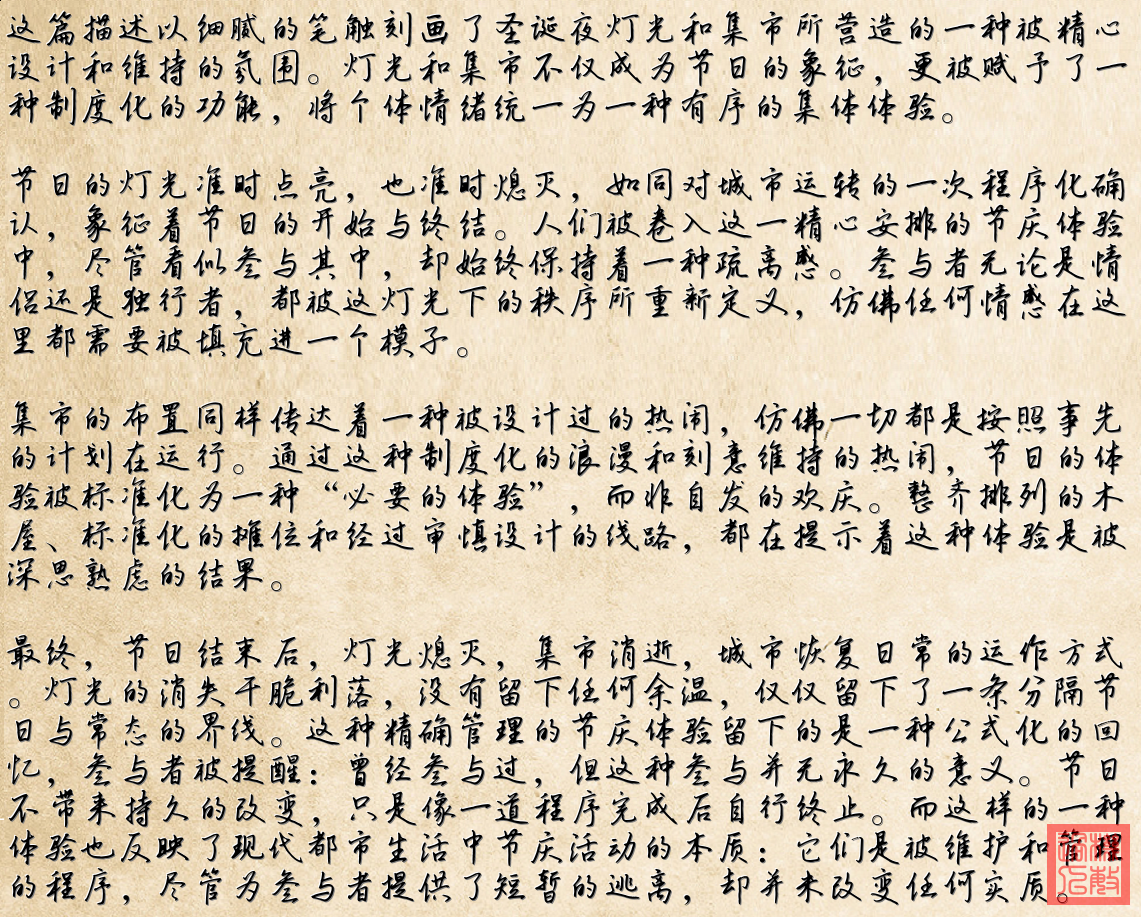 这篇描述以细腻的笔触刻画了圣诞夜灯光和集市所营造的一种被精心
设计和维持的氛围。灯光和集市不仅成为节日的象征，更被赋予了一
种制度化的功能，将个体情绪统一为一种有序的集体体验。
节日的灯光准时点亮，也准时熄灭，如同对城市运转的一次程序化确
认，象征着节日的开始与终结。人们被卷入这一精心安排的节庆体验
中，尽管看似参与其中，却始终保持着一种疏离感。参与者无论是情
侣还是独行者，都被这灯光下的秩序所重新定义，仿佛任何情感在这
里都需要被填充进一个模子。
集市的布置同样传达着一种被设计过的热闹，仿佛一切都是按照事先
的计划在运行。通过这种制度化的浪漫和刻意维持的热闹，节日的体
验被标准化为一种“必要的体验”，而非自发的欢庆。整齐排列的木
屋、标准化的摊位和经过审慎设计的线路，都在提示着这种体验是被
深思熟虑的结果。
最终，节日结束后，灯光熄灭，集市消逝，城市恢复日常的运作方式
。灯光的消失干脆利落，没有留下任何余温，仅仅留下了一条分隔节
日与常态的界线。这种精确管理的节庆体验留下的是一种公式化的回
忆，参与者被提醒：曾经参与过，但这种参与并无永久的意义。节日
不带来持久的改变，只是像一道程序完成后自行终止。而这样的一种
体验也反映了现代都市生活中节庆活动的本质：它们是被维护和管理
的程序，尽管为参与者提供了短暂的逃离，却并未改变任何实质。